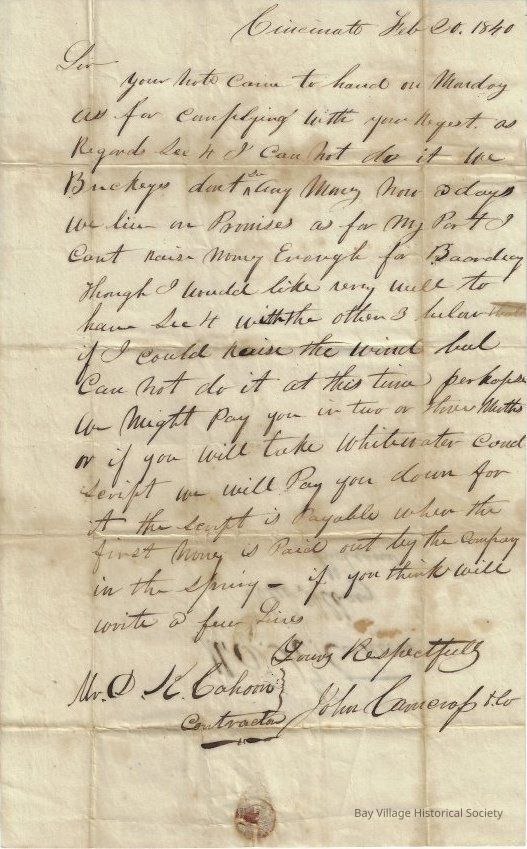 Cincinato Feb 20. 1840
Sir
Your Note Came to hand on Monday
as for complying with your Request. as
Regards Sec 4 I Can Not do it We
Buckeyes dont se any Money Now a days
We live on Promises as for My Part I
Cant raise money Enough for Boarding
though I would like very well to
have Sec 4 with the other 3 below
if I could raise the wind but
Can not do it at this time perhaps
We Might Pay you in two or three Moths
or if you will take Whitewater Canal
Script we will Pay you down for
it the script is Payable when the
first Money is Paid out by the Company
in the Spring – if you think will
write a few Lines
Yours Respectfully
Mr. D. K. Cahoon
Contractor
John & Co
Bay Village Historical Society